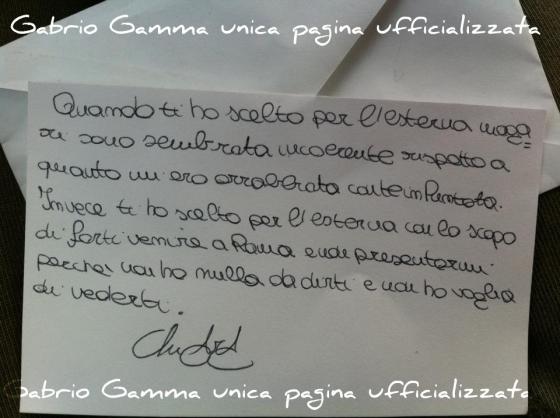 Gabrio Gamma unica pagina ufficializzata
Quando ti ho scelto per l'esterna maga
ri sono sembrata incoerente rispetto a
quanto mi ero arrabbiata carte in puntata.
Invece ti ho scelto per l'esterna con lo scopo
di farti venire a Roma e non presentarmi
perché non ho nulla da dirti e non ho voglia
di vederti.
Gabrio Gamma unica pagina ufficializzata